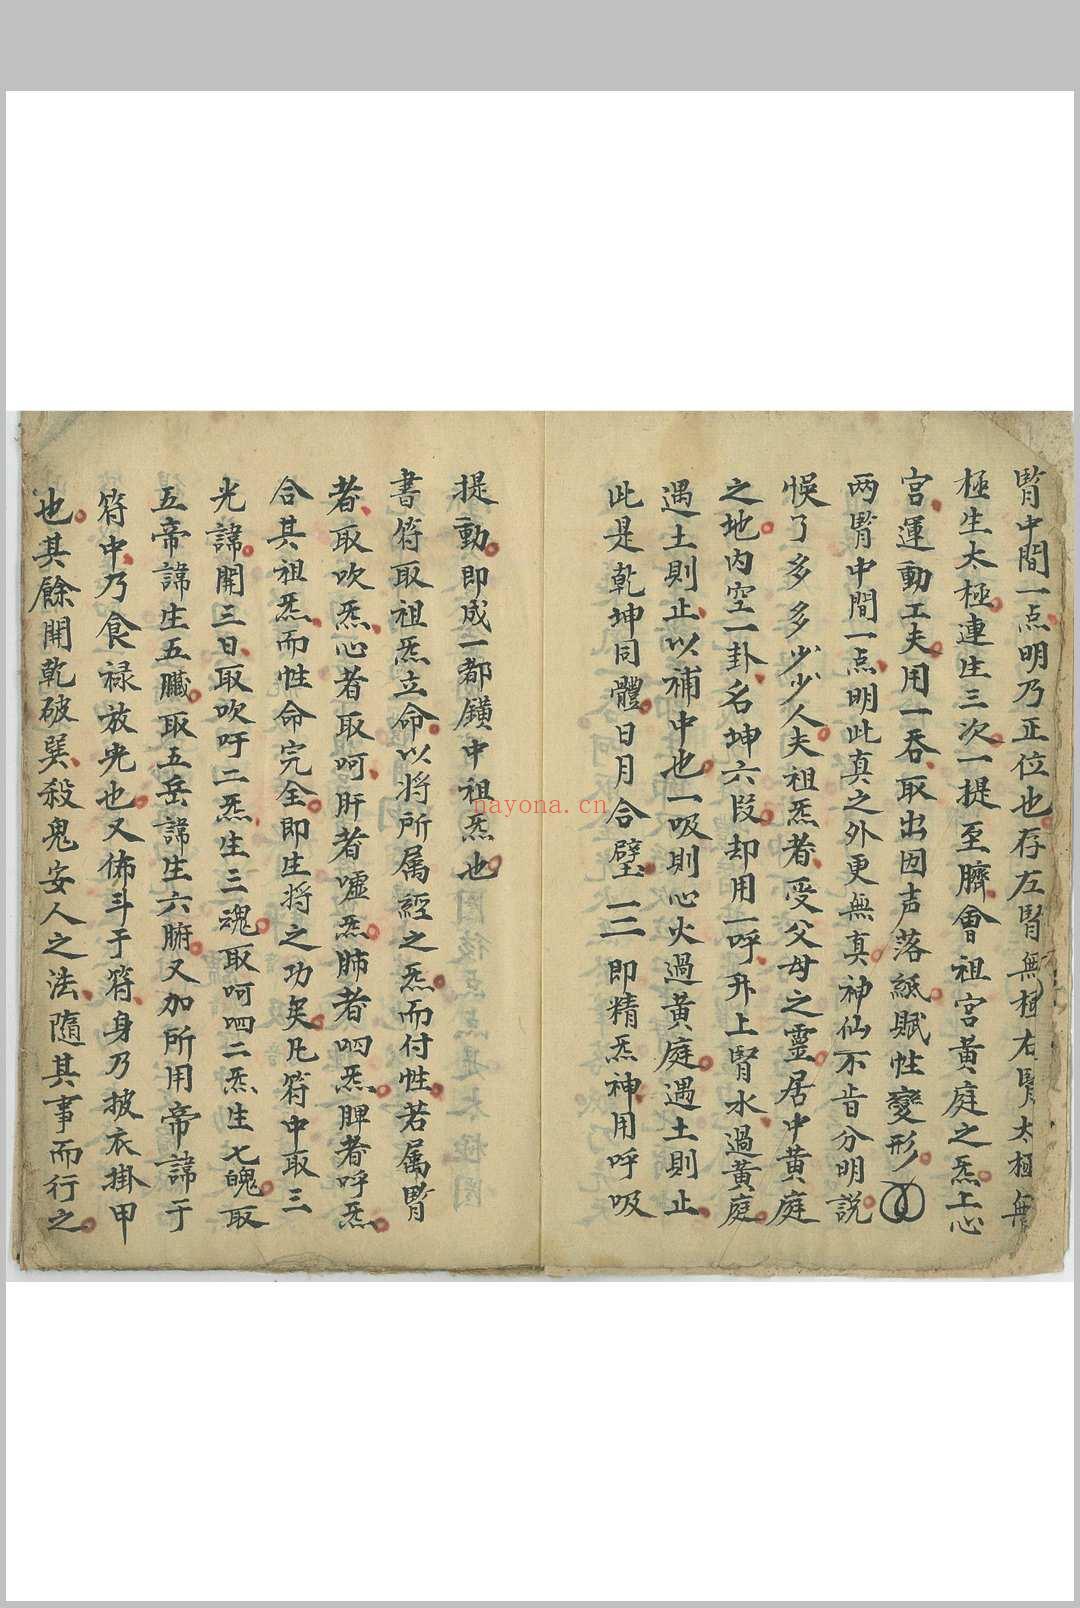 腎中間一点明乃正位也存左腎無極右腎太極無
極生太極連生三次一提至臍會祖宮黃庭之炁上心
宮運動工夫用一吞取出因声落紙賦性變形
两腎中間一点明此真之外更無真神仙不肯分明説
悞了多多少少人夫祖炁者受父母之靈居中黄庭
之地内空一卦名坤六段却用一呼升上腎水過黄庭
遇土則止以補中也一吸則心火過黄庭遇土則止
此是乾坤同體日月合璧三即精炁神用呼吸
提動即成一都鐄中祖炁也
書符取祖炁立命以將所属經之炁而付性若属腎
者取吹炁心者取呵肝者嘘炁肺者呬炁脾者呼炁
合其祖炁而性命完全即生将之功矣凡符中取三
光諱開三日取吹吁二炁生三魂取呵呬二炁生七魄取
五帝諱生五臓取五岳諱生六腑又加所用帝諱于
符中乃食禄放光也又佈斗于符身乃披衣掛甲
也其餘開乾破巽殺鬼安人之法隨其事而行之
nayona.cn